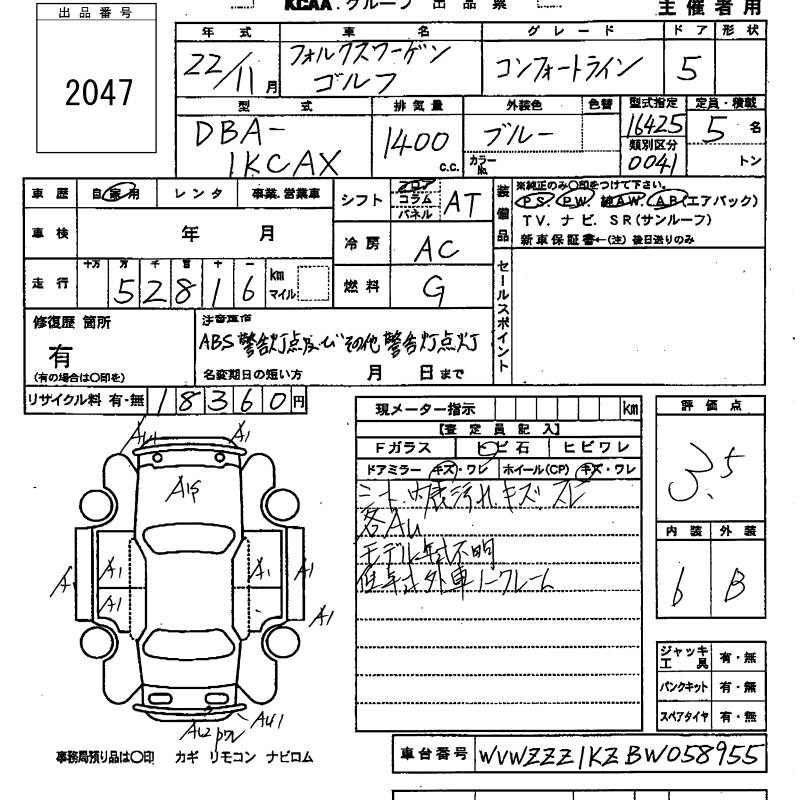 KCAA.グループ 出品票
主催者用
出品番号
2047
年式 車名 グレード ドア 形状
22/11月 フォルクスワーゲン ゴルフ コンフォートライン 5
型式 排気量 外装色 色替 型式指定 定員・積載
DBA-1KCAX 1400 c.c. ブルー カラーNo. 16425 5名
類別区分
0041 トン
車歴 自家用 レンタ 事業.営業車
シフト フロア コラム パネル AT
装備品
※純正のみ〇印をつけて下さい。
PS PW 純AW. AB(エアバック)
TV. ナビ. SR(サンルーフ)
新車保証書←(注) 後日送りのみ
車検 年 月
冷房 AC
走行 十万 万 千 百 十 一
52816 km マイル
燃料 G
セールスポイント
修復歴 箇所
有
(有の場合は〇印を)
注意事項
ABS警告灯点灯及びその他警告灯点灯
名変期日の短い方 月 日まで
リサイクル料 有・無 18360円
現メーター指示 km
【査定員記入】
Fガラス ヒビ石 ヒビワレ
ドアミラー キズ・ワレ ホイール(CP) キズ・ワレ
シート、内張汚れキズ、スレ
各AU
モデル年式不明
低年式外車ノークレーム
評価点
3.5
内装 外装
6 B
A1
A1
A1
A1
A1
A1
A1
ジャッキ工具 有・無
パンクキット 有・無
スペアタイヤ 有・無
事務局預り品は〇印 カギ リモコン ナビロム
車台番号 WVWZZZ1KZBW058955